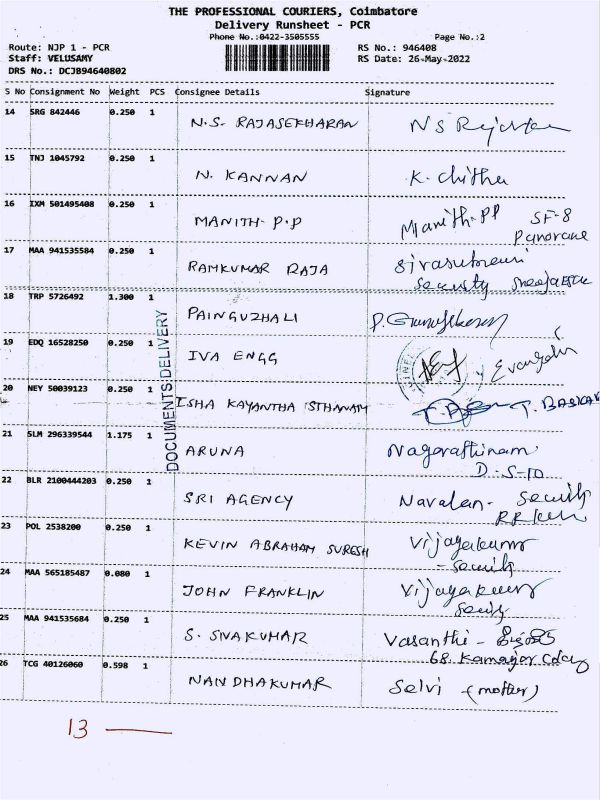 THE PROFESSIONAL COURIERS, Coimbatore
Delivery Runsheet - PCR
Phone No.:0422-3505555 Page No.:2
Route: NJP 1 - PCR RS No.: 946408
Staff: VELUSAMY RS Date: 26-May-2022
DRS No.: DCJB94640802
S No Consignment No Weight PCS Consignee Details Signature
14 SRG 842446 0.250 1
N.S. RAJASEKHARAN N S
15 TNJ 1045792 0.250 1
N. KANNAN K. chitha
16 IXM 501495408 0.250 1
MANITH-P.P Manith-PP SF-8
Panorama
17 MAA 941535584 0.250 1
RAMKUMAR RAJA
Security
18 TRP 5726492 1.300 1
PAINGUZHALI
19 EDQ 16528250 0.250 1
IVA ENGG
20 NEY 50039123 0.250 1
ISHA KAYANTHA ISTHANAM T. BASKAR
DOCUMENTS DELIVERY
21 SLM 296339544 1.175 1
ARUNA Nagarathinam
D-S-10
22 BLR 2100444203 0.250 1
SRI AGENCY Navalan-
23 POL 2538200 0.250 1
KEVIN ABRAHAM SURESH Vijayakumar
24 MAA 565185487 0.080 1
JOHN FRANKLIN Vijayakumar
25 MAA 941535684 0.250 1
S. SIVAKUMAR Vasanthi -
68. Kamajar
26 TCG 40126060 0.598 1
NANDHAKUMAR Selvi - (mother)
13 —